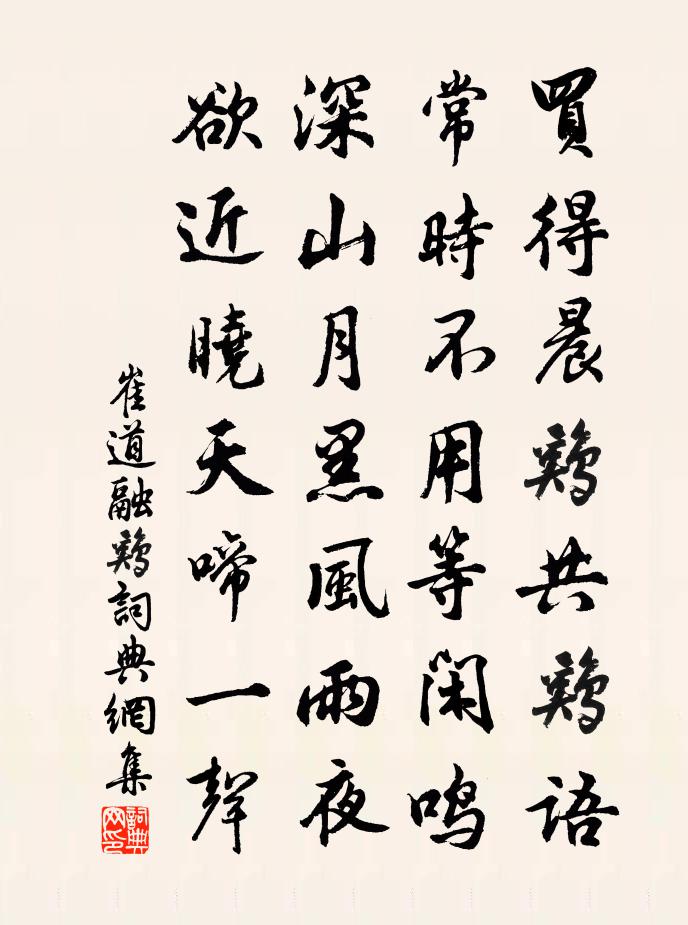 買得晨鷄共鷄語
常時不用等閑鳴
深山月黑風雨夜
欲近曉天啼一聲
崔道融鷄詞典網集
詞典
网印